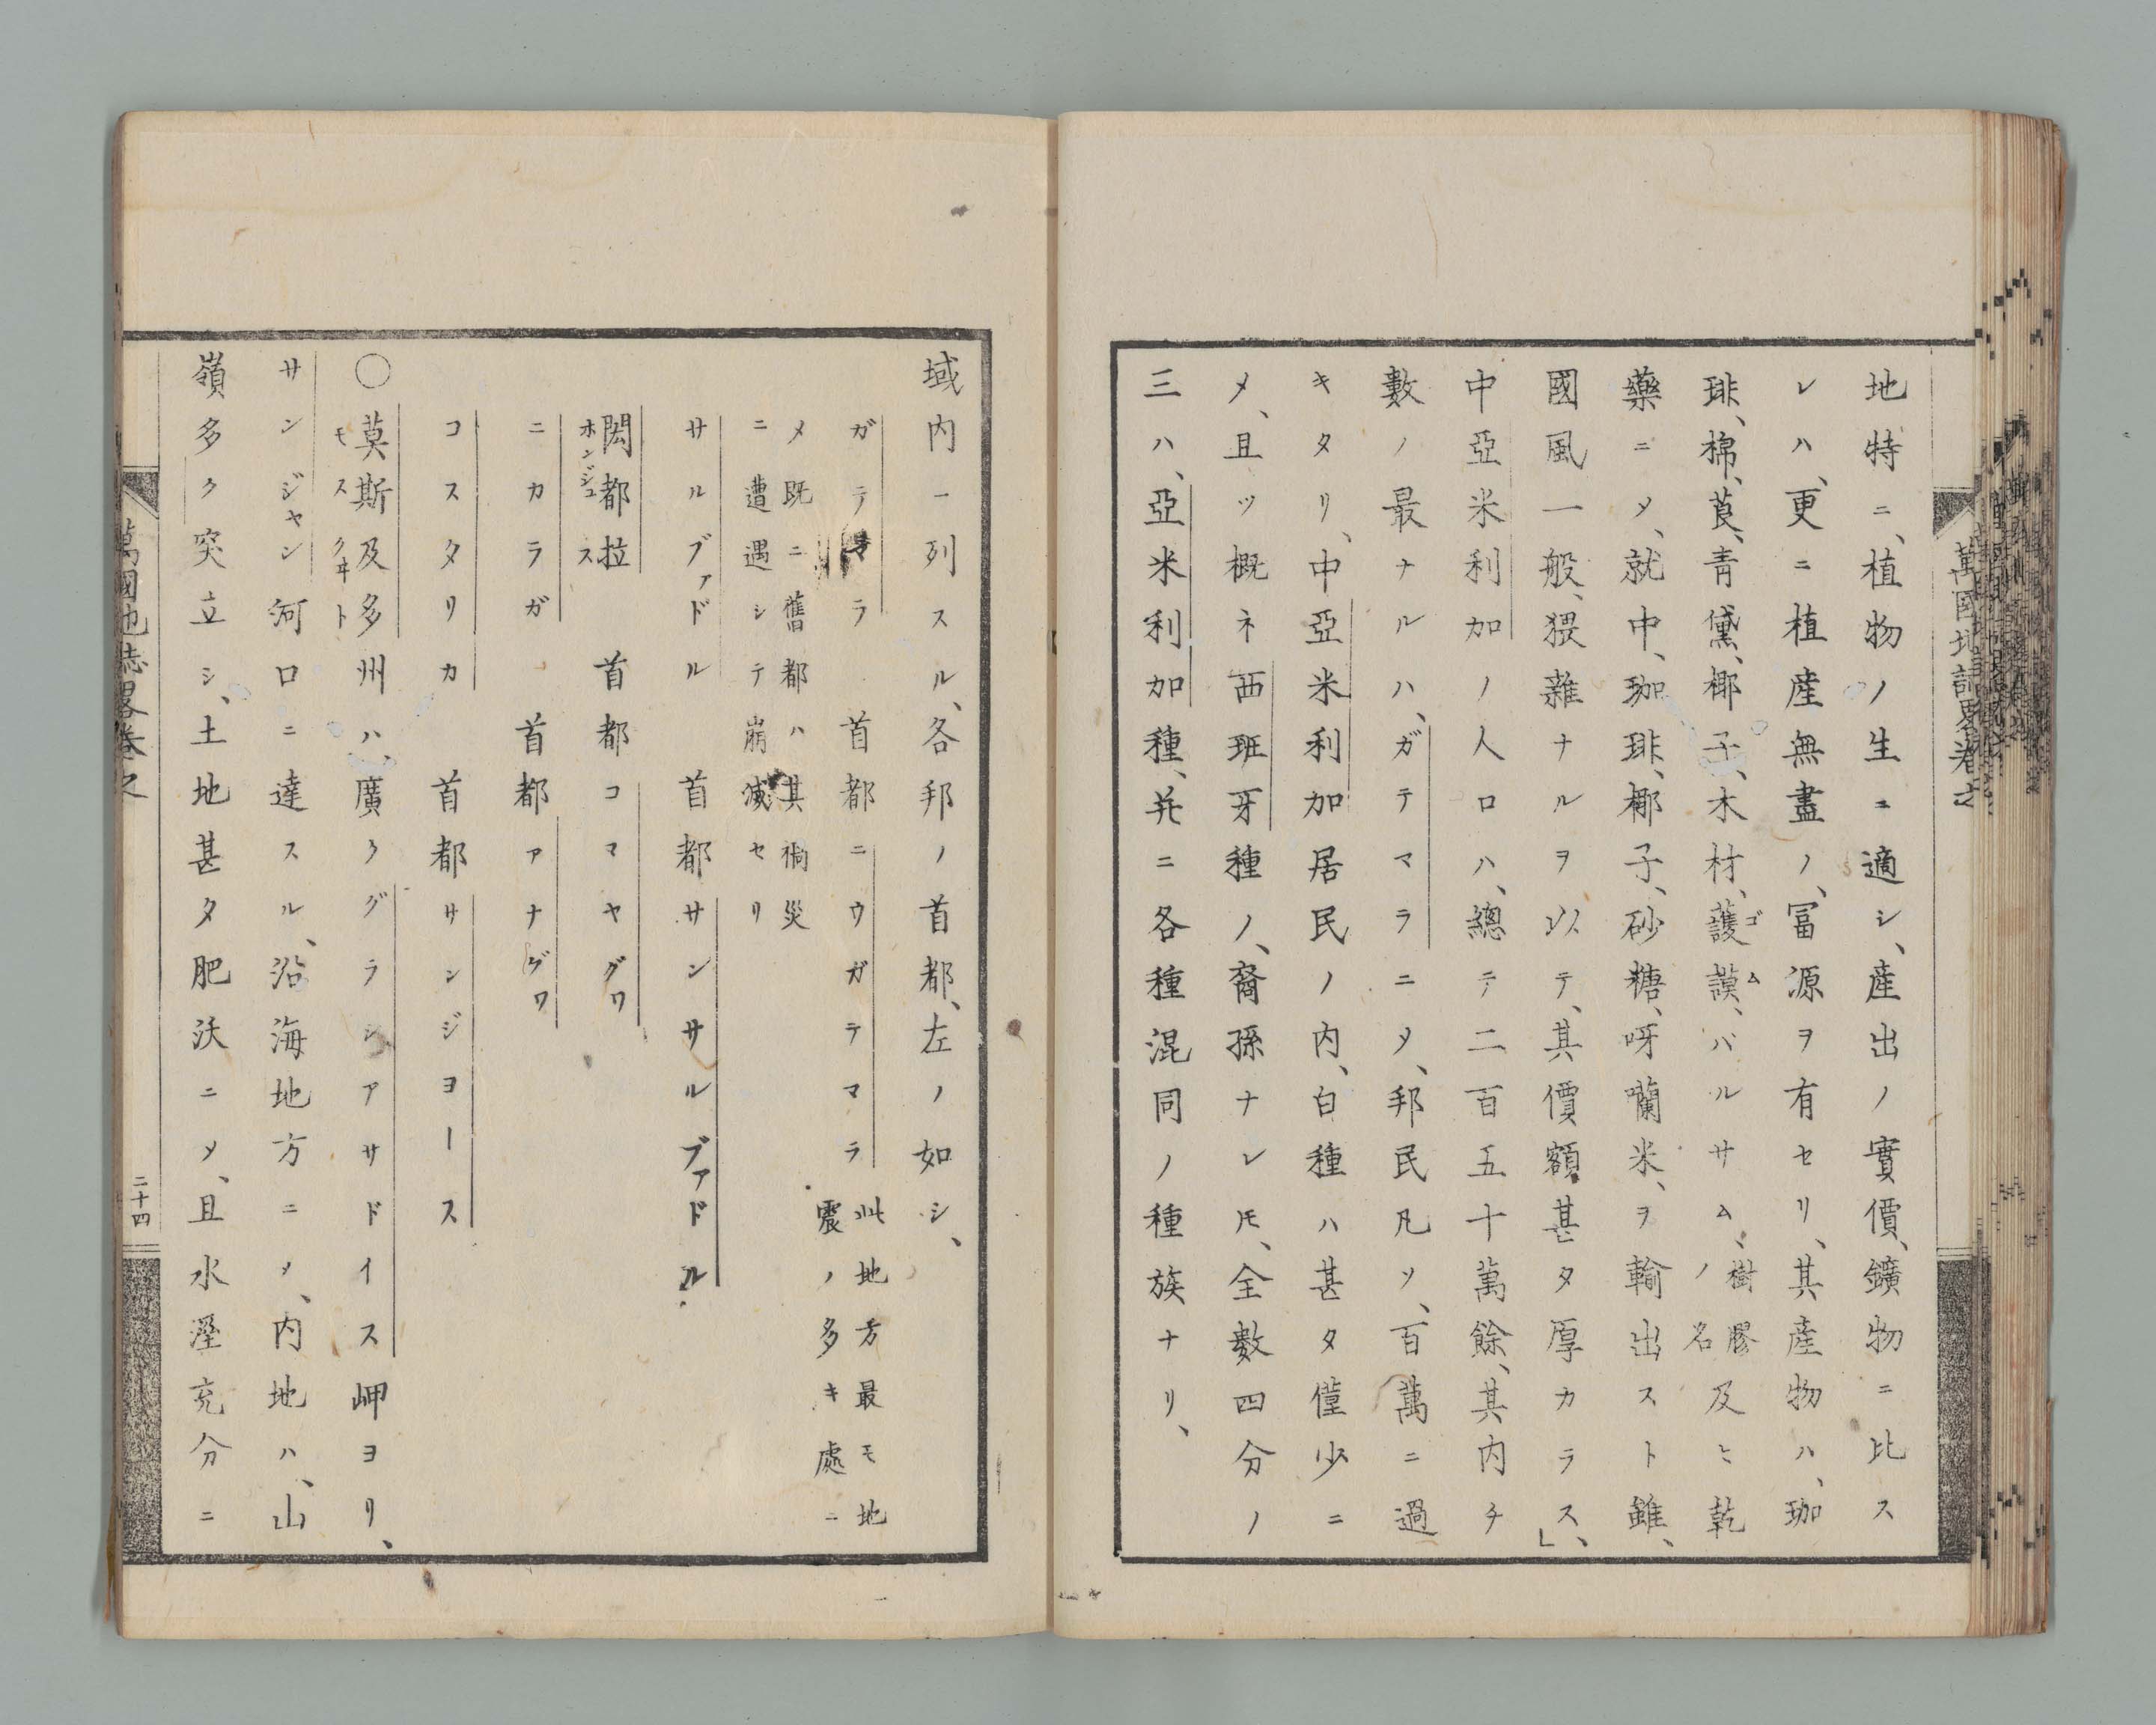 萬國地誌畧卷之
地特ニ、植物ノ生ニ適シ、産出ノ實價、鑛物ニ比ス
レハ、更ニ植産無盡ノ、冨源ヲ有セリ、其産物ハ、珈
琲、棉、莨、青黛、椰子、木材、護謨、バルサム、樹膠ノ名及ヒ乾
ゴム
藥ニメ、就中、珈琲、椰子、砂糖、呀囒米、ヲ輸出スト雖、
國風一般、猥雜ナルヲ以テ、其價額甚タ厚カラス、」
中亞米利加ノ人口ハ、總テ二百五十萬餘、其内チ
數ノ最ナルハ、ガテマラニメ、邦民凡ソ、百萬ニ過
キタリ、中亞米利加居民ノ内、白種ハ甚タ僅少ニ
メ、且ツ概ネ西班牙種ノ、裔孫ナレ𪜈、全數四分ノ
三ハ、亞米利加種、并ニ各種混同ノ種族ナリ、
域内一列スル、各邦ノ首都、左ノ如シ、
ガテマラ 首都ニウガテマラ 此地方最モ地
震ノ多キ處ニ
メ既ニ舊都ハ其禍災
ニ遭遇シテ崩滅セリ
サルブァドル 首都サンサルブァドル
閎都拉 首都コマヤグワ
ホンジュス
ニカラガ 首都アナゲワ
コスタリカ 首都サンジヨース
○莫斯及多州ハ、廣クグラシアサドイス岬ヨリ、
モスクヰト
サンジャン河口ニ達スル、沿海地方ニメ、内地ハ、山
嶺多ク突立シ、土地甚タ肥沃ニメ、且水溼充分ニ
萬國地誌畧卷之
二十四